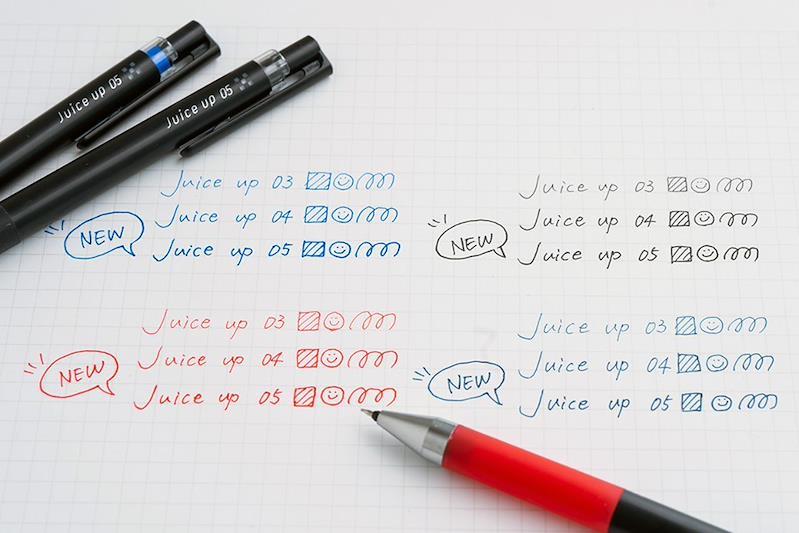 Juice up 05
Juice up 05
Juice up 03
Juice up 04
NEW
Juice up 05
Juice up 03
Juice up 04
NEW
Juice up 05
Juice up 03
Juice up 04
NEW
Juice up 05
Juice up 03
Juice up 04
NEW
Juice up 05